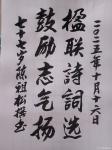 二〇二五年十月十六日
楹联诗词选
鼓励志气扬
七十七岁陈祖松撰书